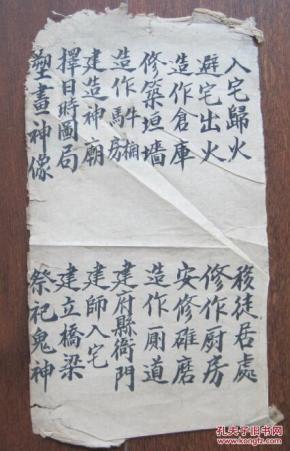 入宅歸火
避宅出火
造作倉庫
修築垣墻
造作牛欄馬房
建造神廟
擇日時圖局
塑畫神像
移徙居處
修作厨房
安修碓磨
造作厠道
建府縣衙門
建師入宅
建立橋梁
祭祀鬼神
孔夫子旧书网